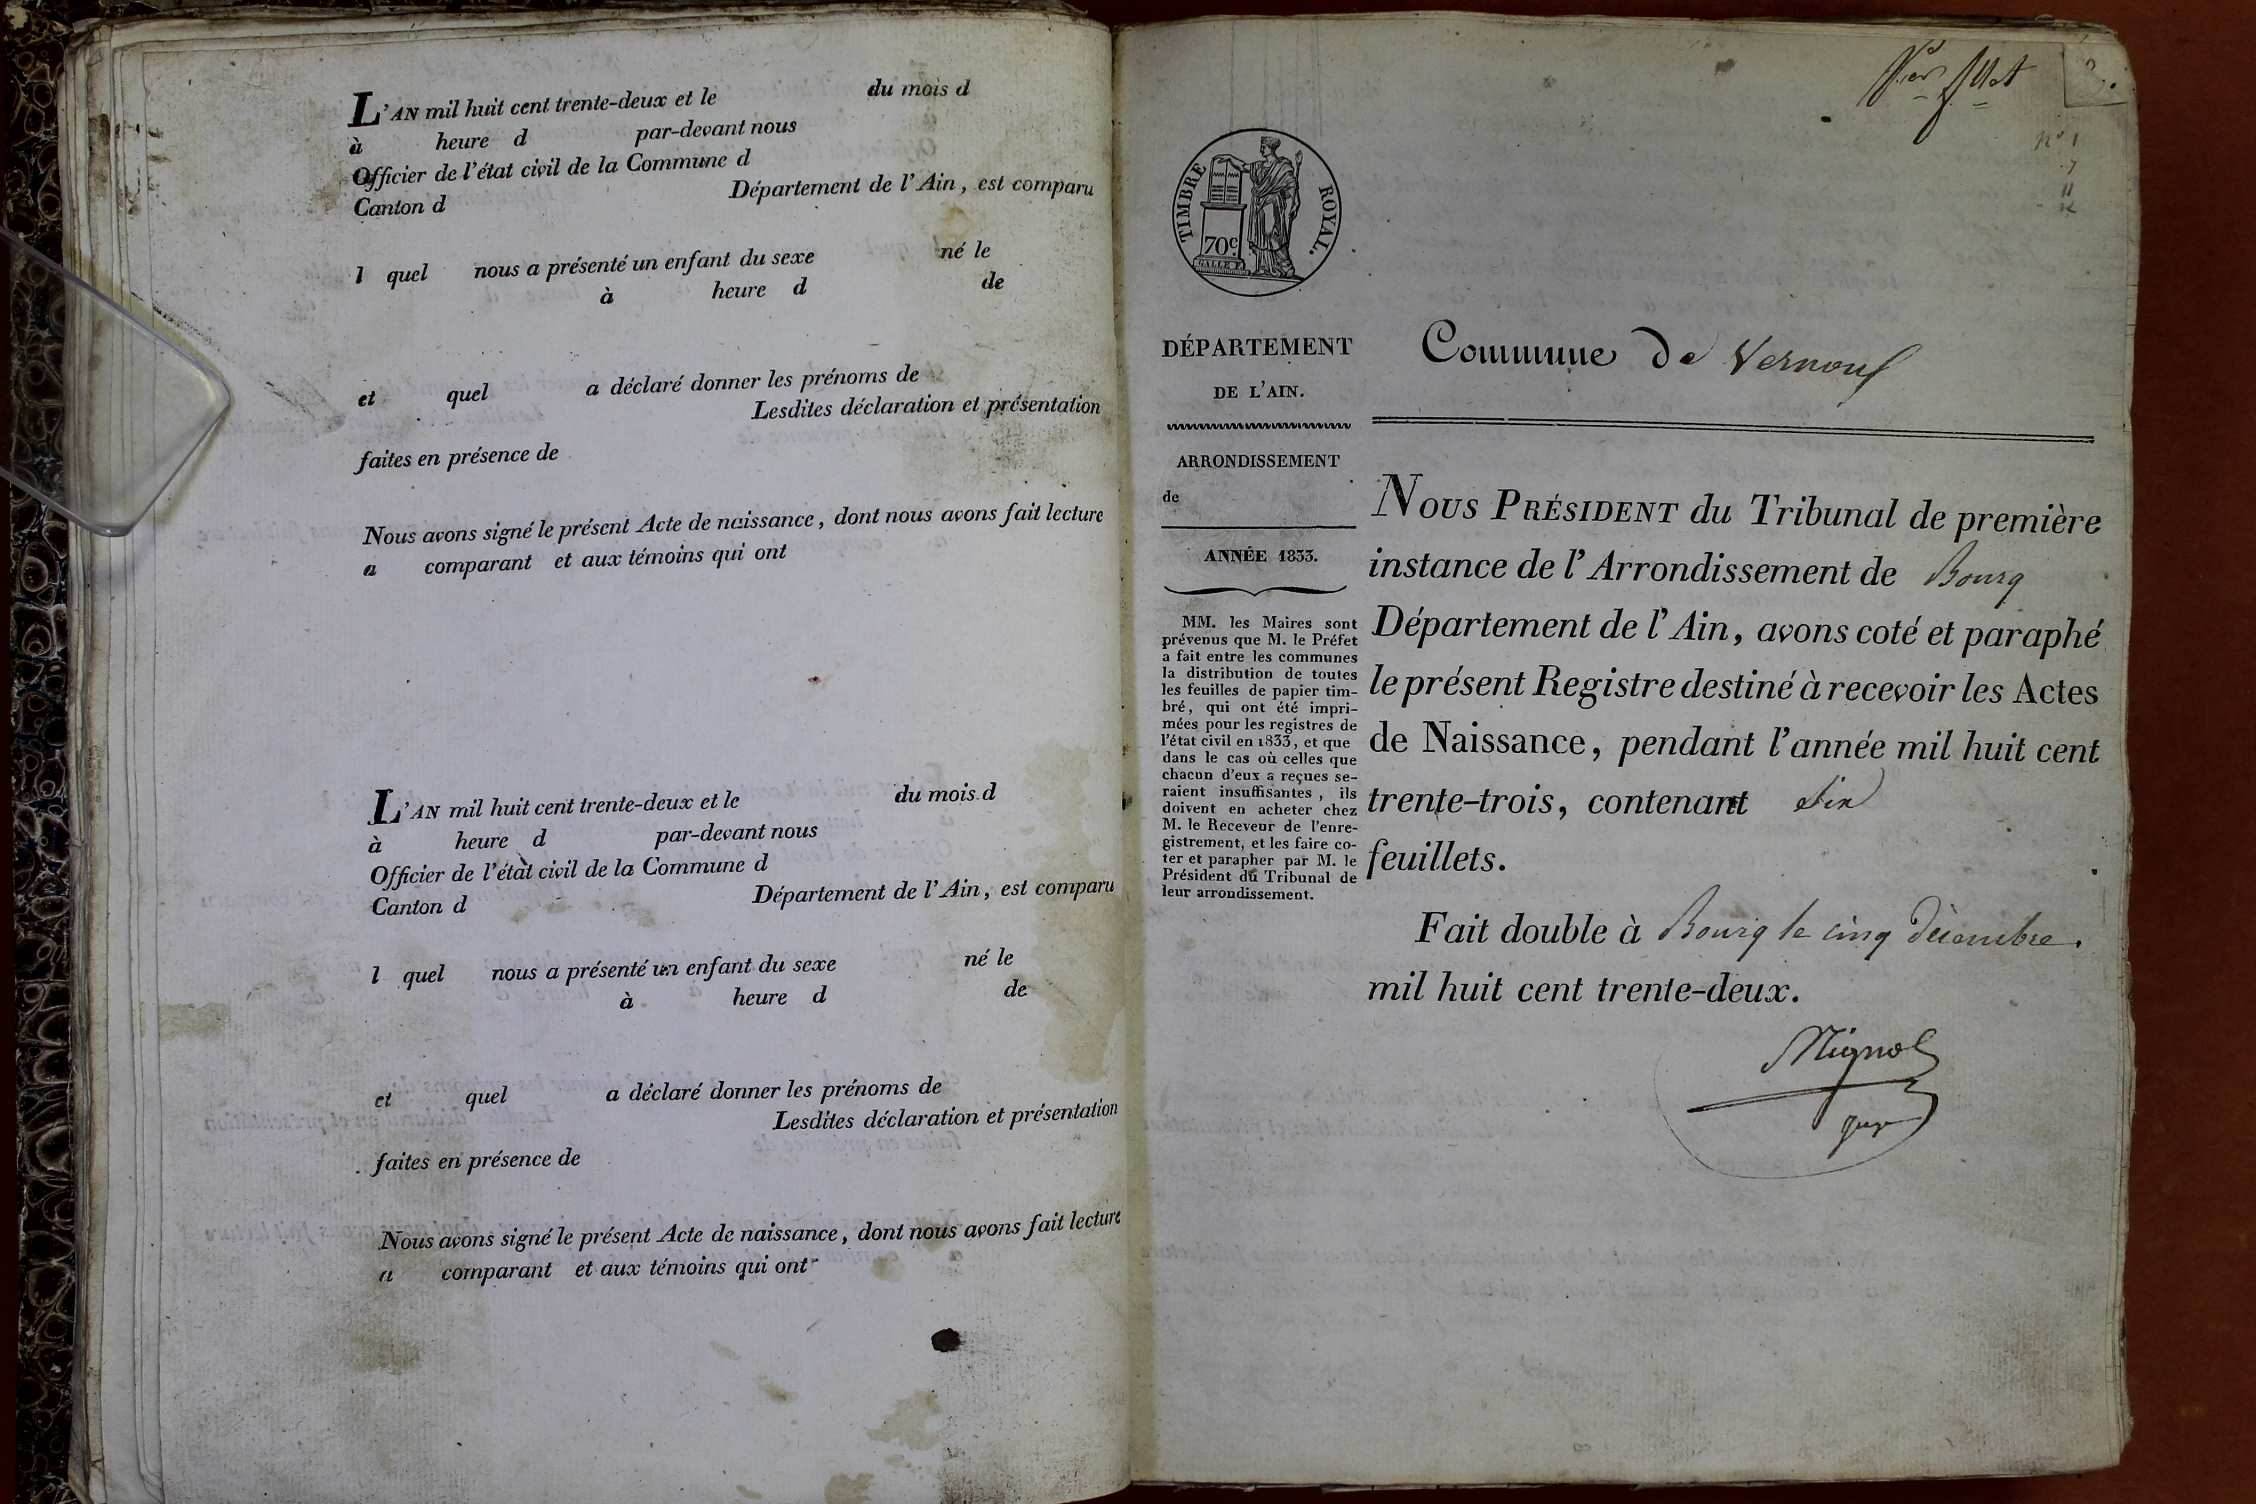 L'AN mil huit cent trente-deux et le du mois d
à heure d par-devant nous
Officier de l'état civil de la Commune d
Canton d Département de l'Ain, est comparu
l quel nous a présenté un enfant du sexe né le
à heure d de
et quel a déclaré donner les prénoms de
Lesdites déclaration et présentation
faites en présence de
Nous avons signé le présent Acte de naissance, dont nous avons fait lecture
a comparant et aux témoins qui ont
L'AN mil huit cent trente-deux et le du mois d
à heure d par-devant nous
Officier de l'état civil de la Commune d
Canton d Département de l'Ain, est comparu
l quel nous a présenté un enfant du sexe né le
à heure d de
et quel a déclaré donner les prénoms de
Lesdites déclaration et présentation
faites en présence de
Nous avons signé le présent Acte de naissance, dont nous avons fait lecture
a comparant et aux témoins qui ont
N° 1
7
11
TIMBRE ROYAL.
70c
DÉPARTEMENT
DE L'AIN.
ARRONDISSEMENT
de
ANNÉE 1833.
MM. les Maires sont
prévenus que M. le Préfet
a fait entre les communes
la distribution de toutes
les feuilles de papier tim-
bré, qui ont été impri-
mées pour les registres de
l'état civil en 1833, et que
dans le cas où celles que
chacun d'eux a reçues se-
raient insuffisantes, ils
doivent en acheter chez
M. le Receveur de l'enre-
gistrement, et les faire co-
ter et parapher par M. le
Président du Tribunal de
leur arrondissement.
Commune de Vernoux
NOUS PRÉSIDENT du Tribunal de première
instance de l'Arrondissement de Bourg
Département de l'Ain, avons coté et paraphé
le présent Registre destiné à recevoir les Actes
de Naissance, pendant l'année mil huit cent
trente-trois, contenant six
feuillets.
Fait double à Bourg le cinq décembre.
mil huit cent trente-deux.